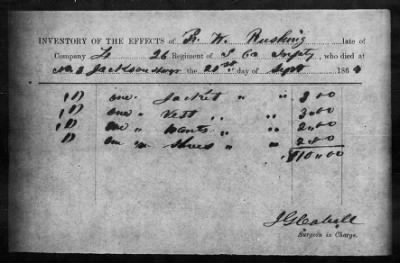 INVENTORY OF THE EFFECTS of R. W. Rushing late of
Company 26 Regiment of S Ca Infty, who died at
No 2 Jackson Hosp the 21st day of Sept 186
(1) one Jacket " " 3.00
(1) one Vest " " 3.00
(1) one Pants " " 2.00
(1) one pr Shoes " " 2.00
$10.00
Surgeon in Charge.